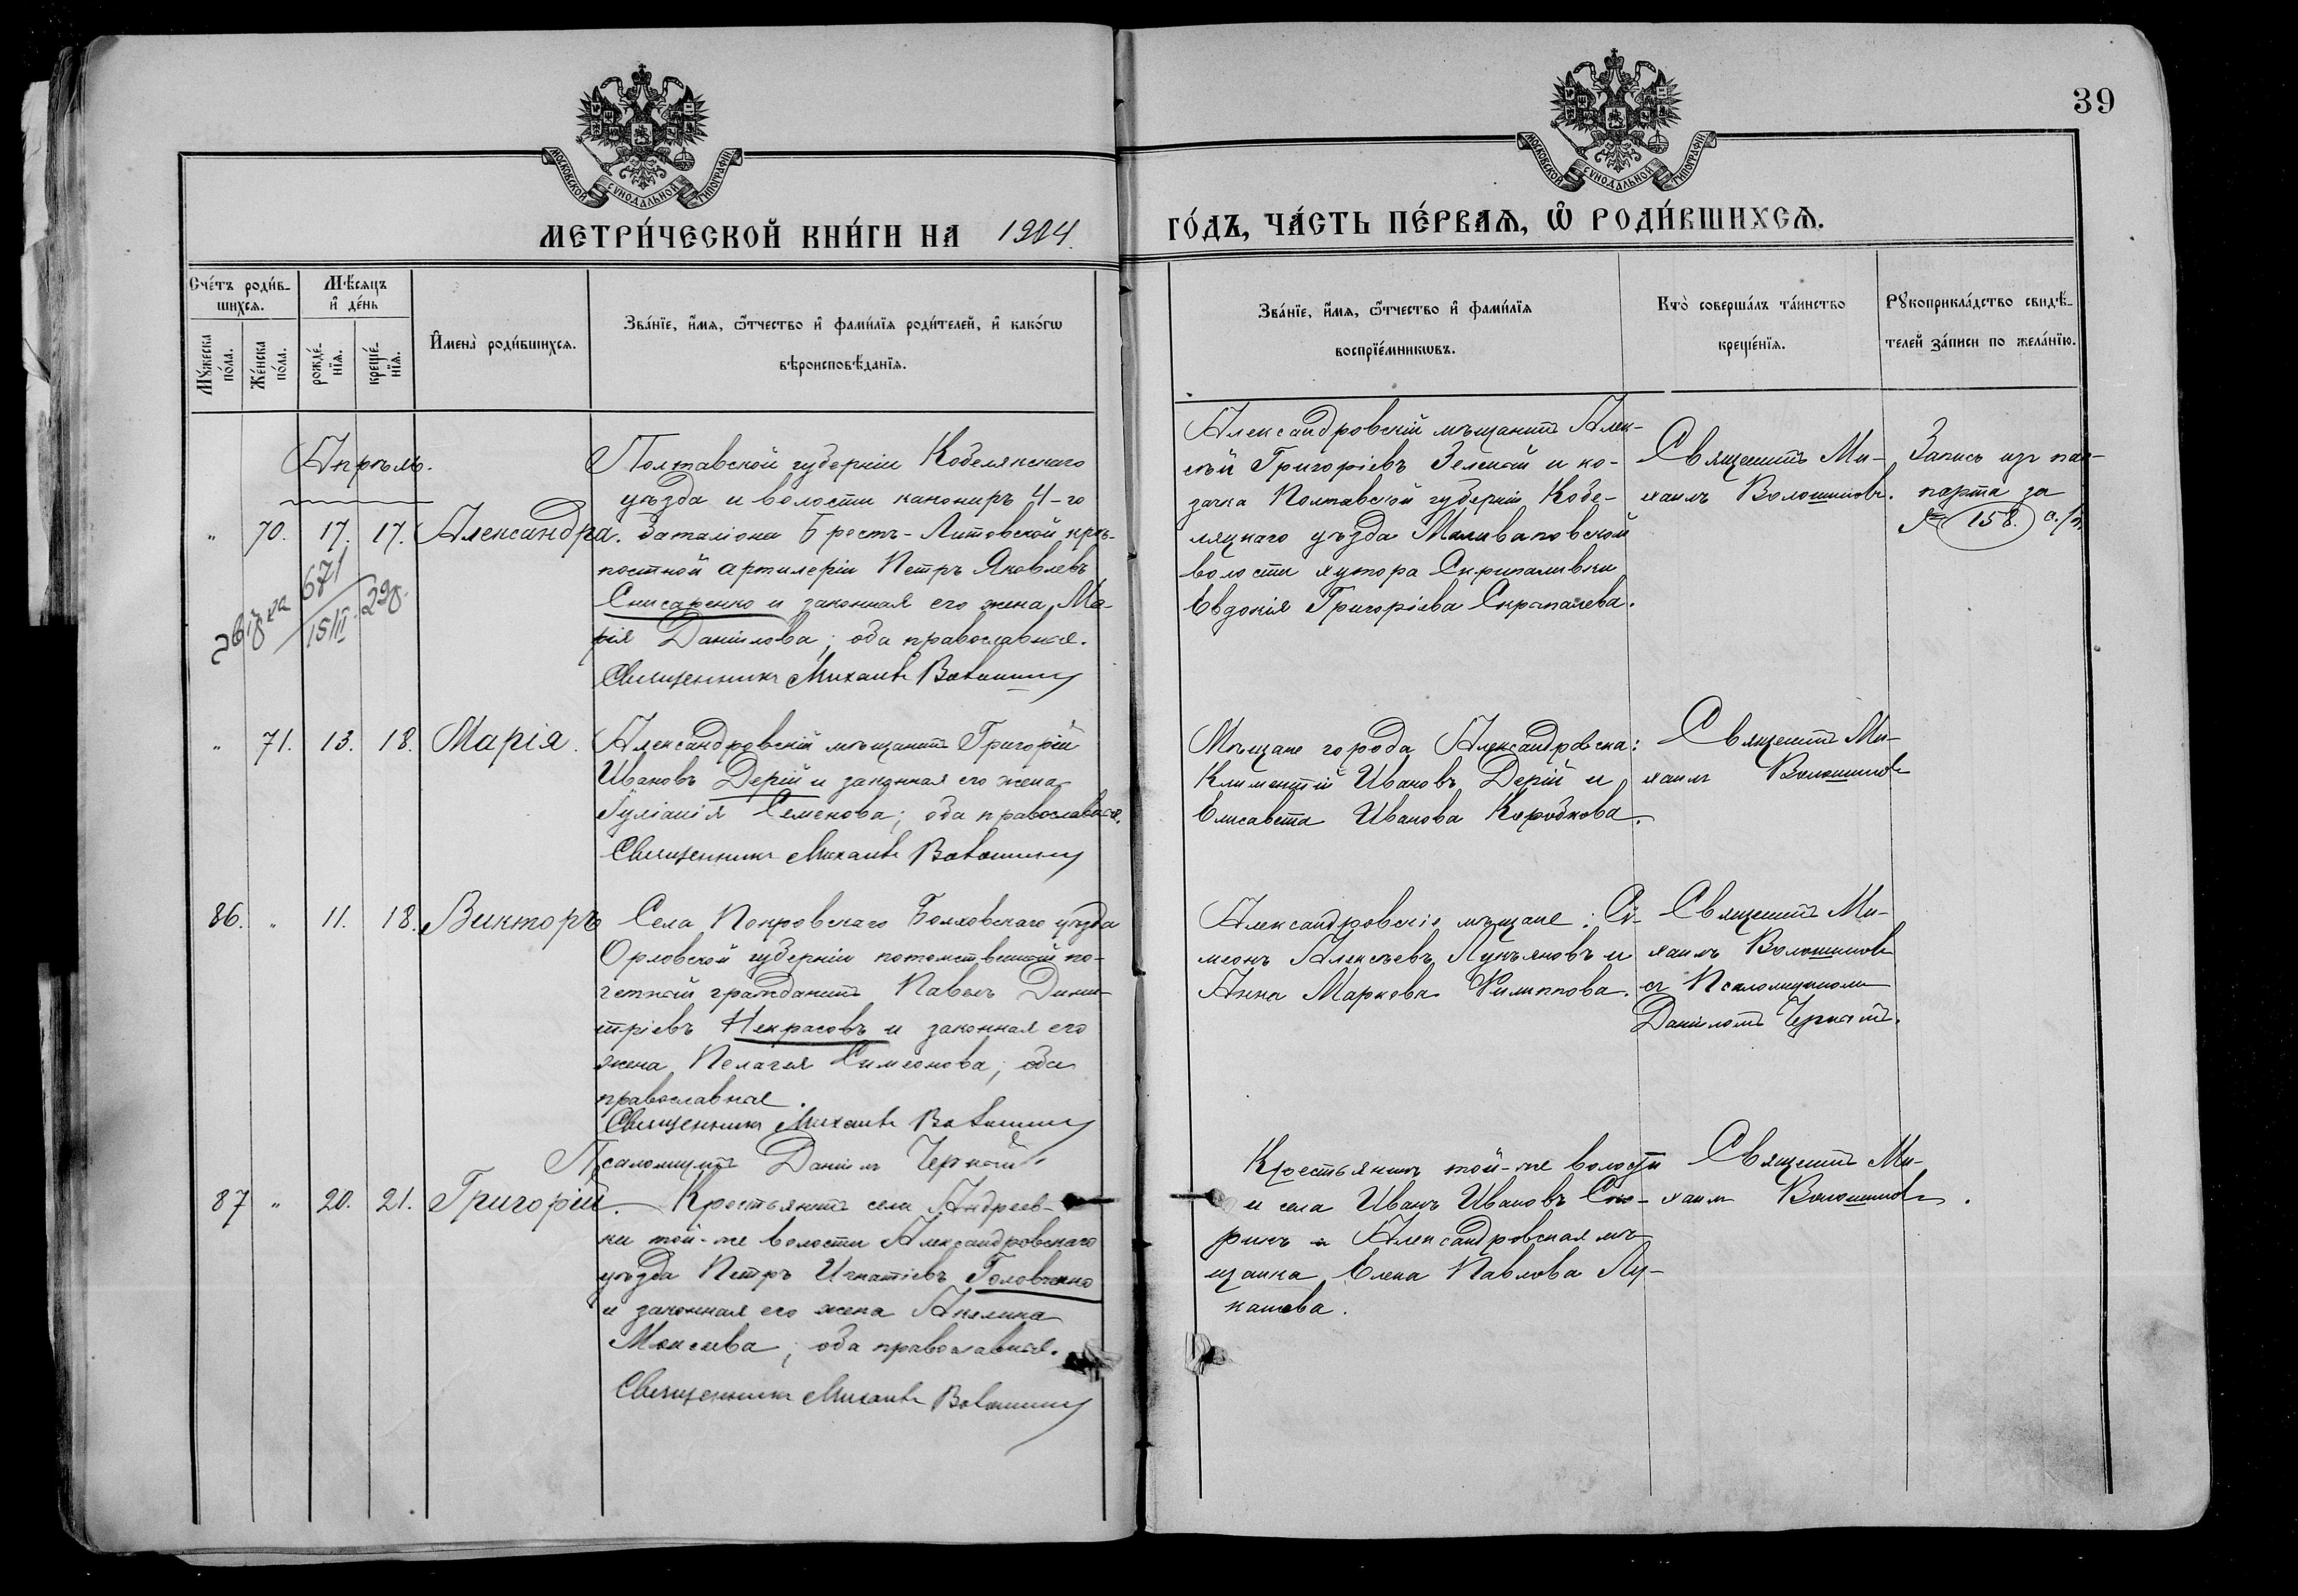 39
МОСКОВСКОЙ СУНОДАЛЬНОЙ ТИПОГРАФІИ
МОСКОВСКОЙ СУНОДАЛЬНОЙ ТИПОГРАФІИ
МЕТРИ́ЧЕСКОЙ КНИ́ГИ НА 1904.
ГО́ДЪ, ЧА́СТЬ ПЕ́РВАѦ, Ѽ РОДИ́ВШИХСѦ.
Сче́тъ роди́в-
шихсѧ.
Мѣ́сѧцъ
и҆ де́нь
Мꙋ́жеска
по́ла.
Же́нска
по́ла.
рожде́-
нїѧ.
креще́-
нїѧ.
И҆мена̀ роди́вшихсѧ.
Зва́нїе, и҆́мѧ, ѻ҆́тчество и҆ фами́лїѧ роди́телей, и҆ како́гѡ
вѣроисповѣ́данїѧ.
Зва́нїе, и҆́мѧ, ѻ҆́тчество и҆ фами́лїѧ
воспрїе́мникѡвъ.
Кто̀ соверша́лъ та́инство
креще́нїѧ.
Рꙋкоприкла́дство свидѣ́-
телей за́писи по жела́нїю.
Апрѣль.
„ 70. 17. 17. Александра.
Полтавской губерніи Кобелякскаго
уѣзда и волости канониръ 4-го
баталіона Брестъ-Литовской крѣ-
постной артилеріи Петръ Яковлевъ
Снисаренко и законная его жена Ма-
рія Даніилова; оба православные.
Священникъ Михаилъ Волошинъ
671
15/II 29г.
Александровскій мѣщанинъ Алек-
сѣй Григоріевъ Зеленый и ко-
зачка Полтавской губерніи Кобе-
ляцкаго уѣзда
волости хутора
Евдокія Григоріева
Священникъ Ми-
хаилъ Волошиновъ.
Запись из
за
№ 158.
„ 71. 13. 18. Марія.
Александровскій мѣщанинъ Григорій
Ивановъ Дерій и законная его жена
Іуліанія Семенова; оба православные.
Священникъ Михаилъ Волошинъ
Мѣщане города Александровска:
Климентій Ивановъ Дерій и
Елисавета Иванова Коробкова.
Священникъ Ми-
хаилъ Волошиновъ
86. „ 11. 18. Викторъ
Села Покровскаго Болховскаго уѣзда
Орловской губерніи потомственный по-
четный гражданинъ Павелъ Дими-
тріевъ Некрасовъ и законная его
жена Пелагія Симеонова; оба
православные.
Священникъ Михаилъ Волошинъ
Псаломщикъ Даніилъ Черный.
Александровскіе мѣщане: Си-
меонъ Алексѣевъ Лукьяновъ и
Анна Маркова Филиппова.
Священникъ Ми-
хаилъ Волошиновъ
съ Псаломщикомъ
Даніиломъ Чернымъ.
87 „ 20. 21. Григорій.
Крестьянинъ села Андреев-
ки той-же волости Александровскаго
уѣзда Петръ Игнатіевъ Головченко
и законная его жена Акилина
Моисеева; оба православные.
Священникъ Михаилъ Волошинъ
Крестьянинъ той-же волости
и села Иванъ Ивановъ Ско-
рикъ и Александровская мѣ-
щанка Елена Павлова Лу-
кашева.
Священникъ Ми-
хаилъ Волошиновъ.